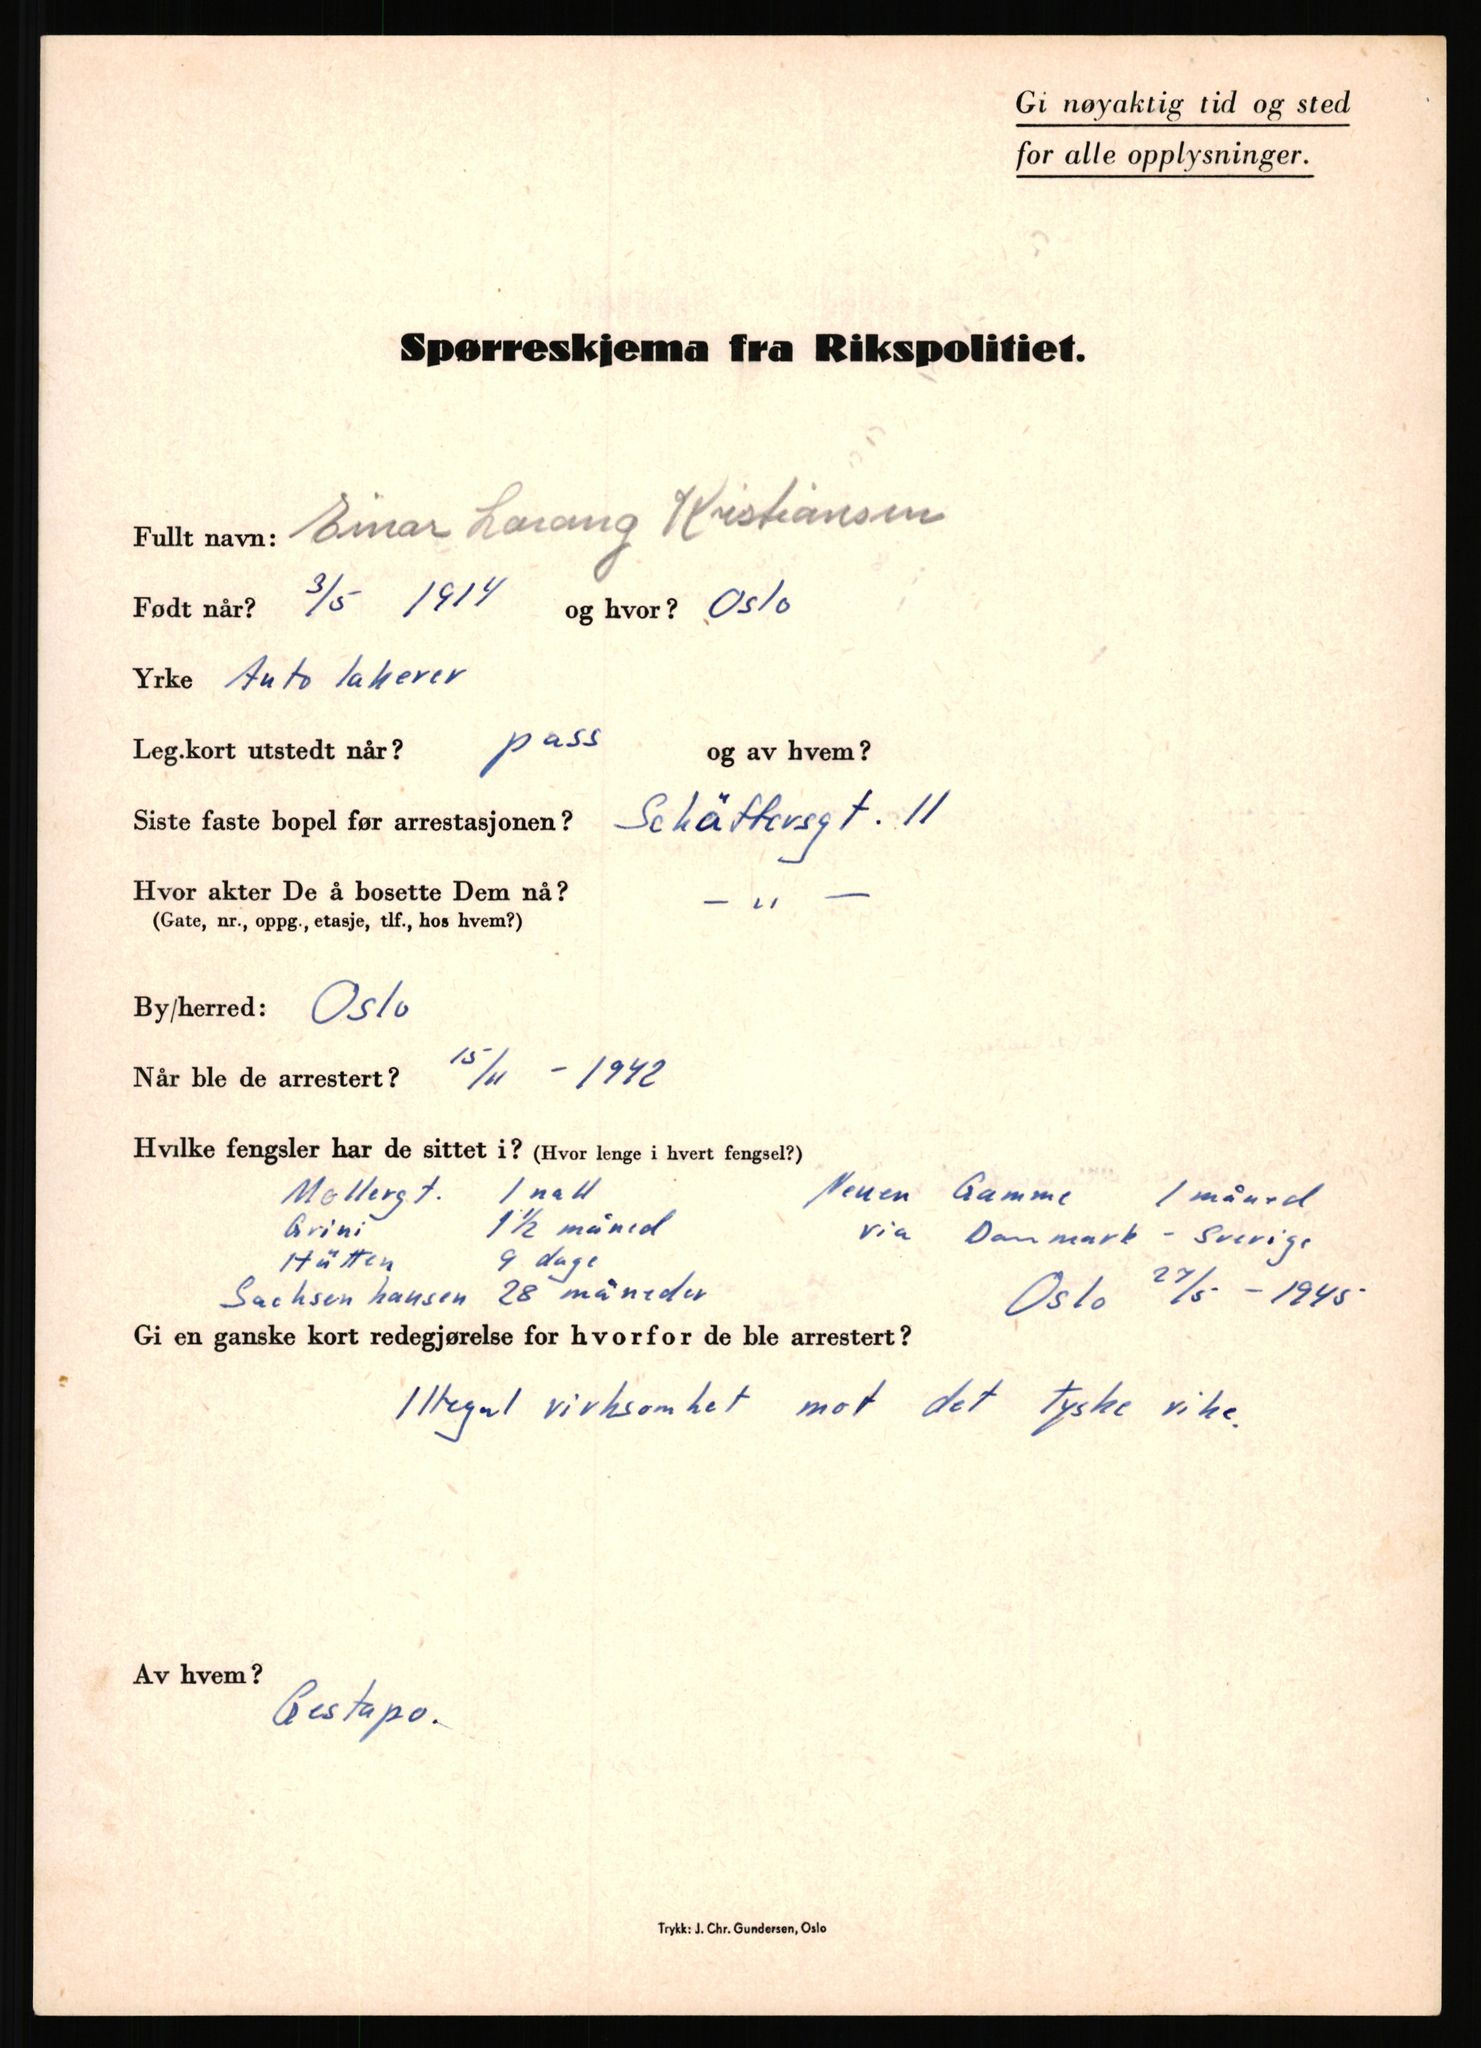 Gi nøyaktig tid og sted
for alle opplysninger.
Spørreskjema fra Rikspolitiet.
Fullt navn: Einar Lorang Kristiansen
Født når? 3/5 1914 og hvor? Oslo
Yrke Auto lakerer
Leg.kort utstedt når? pass og av hvem?
Siste faste bopel før arrestasjonen? Schäffersgt. 11
Hvor akter De å bosette Dem nå? - " -
(Gate, nr., oppg., etasje, tlf., hos hvem?)
By/herred: Oslo
Når ble de arrestert? 15/11 - 1942
Hvilke fengsler har de sittet i? (Hvor lenge i hvert fengsel?)
Møllergt. 1 natt Neuen Gamme 1 måned
Grini 1 1/2 måned via Danmark - Sverige
Hütten 9 dage
Sachsenhausen 28 måneder Oslo 27/5 - 1945
Gi en ganske kort redegjørelse for hvorfor de ble arrestert?
Illegal virksomhet mot det tyske rike.
Av hvem?
Gestapo.
Trykk: J. Chr. Gundersen, Oslo